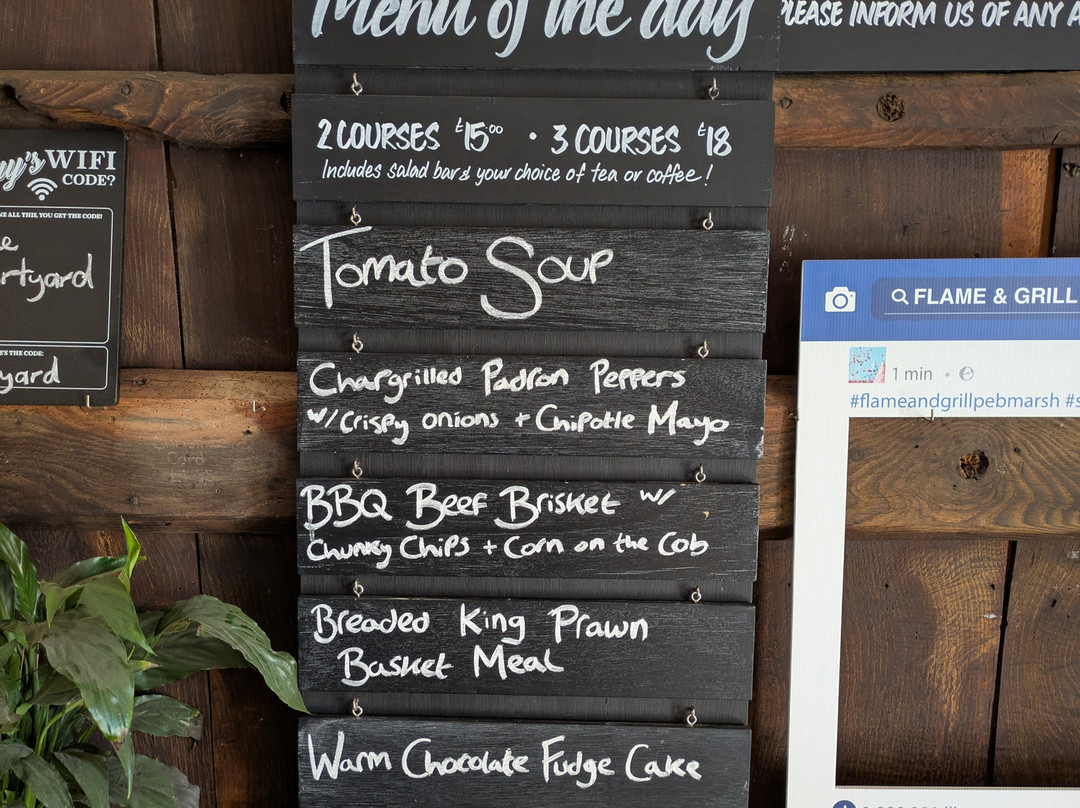 Menu of the day
PLEASE INFORM US OF ANY
2 COURSES £15.00 • 3 COURSES £18
Includes salad bar & your choice of tea or coffee!
Tomato Soup
Chargrilled Padron Peppers
w/ Crispy onions + Chipotle Mayo
BBQ Beef Brisket w/
Chunky Chips + Corn on the Cob
Breaded King Prawn
Basket Meal
Warm Chocolate Fudge Cake
WIFI
CODE?
ALL THIS, YOU GET THE CODE!
THE CODE:
FLAME & GRILL
1 min
#flameandgrillpebmarsh